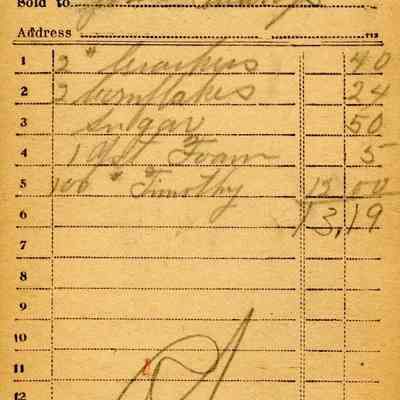 Sold to
Address
1 2 " Crackers 40
2 2 Cornflakes 24
3 Sugar 50
4 1 Yst Foam 5
5 100 " Timothy 12 00
6 13,19
7
8
9
10
11
12